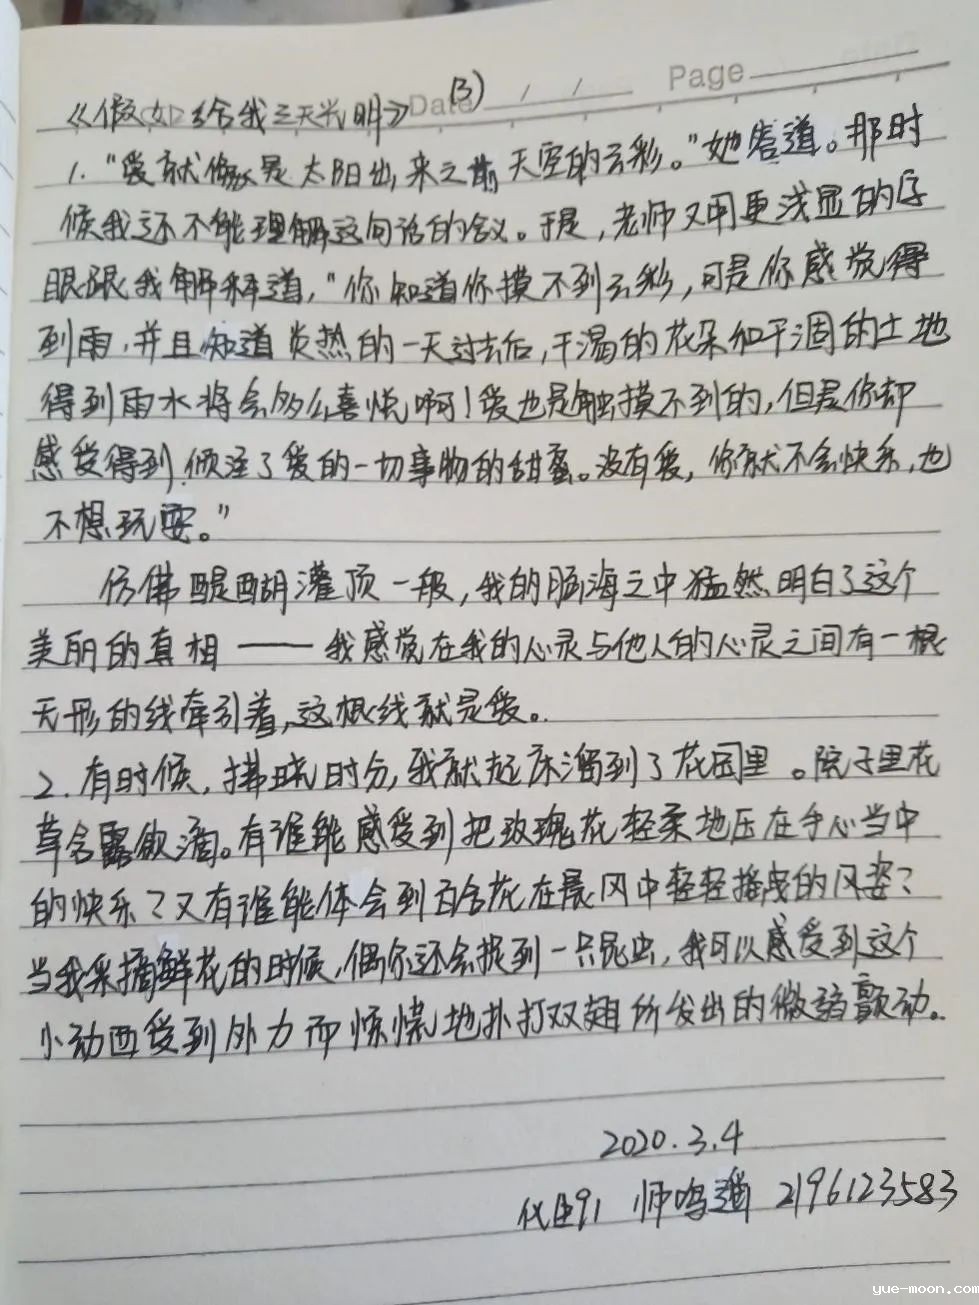 《假如给我三天光明》 Date (3) / / Page
1. "爱就像是太阳出来之前天空的云彩。"她答道。那时
候我还不能理解这句话的含义。于是,老师又用更浅显的字
眼跟我解释道,"你知道你摸不到云彩,可是你感觉得
到雨,并且知道炎热的一天过去后,干渴的花朵和干涸的土地
得到雨水将会多么喜悦啊!爱也是触摸不到的,但是你却
感受得到倾注了爱的一切事物的甜蜜。没有爱,你就不会快乐,也
不想玩耍。"
仿佛醍醐灌顶一般,我的脑海之中猛然明白了这个
美丽的真相——我感觉在我的心灵与他人的心灵之间有一根
无形的线牵引着,这根线就是爱。
2. 有时候,拂晓时分,我就起床溜到了花园里。院子里花
草含露欲滴。有谁能感受到把玫瑰花轻柔地压在手心当中
的快乐?又有谁能体会到百合花在晨风中轻轻摇曳的风姿?
当我采摘鲜花的时候,偶尔还会捉到一只昆虫,我可以感受到这个
小动西受到外力而惊慌地扑打双翅所发出的微弱颤动。
2020.3.4
师鸣 2196123583
yue-moon.com